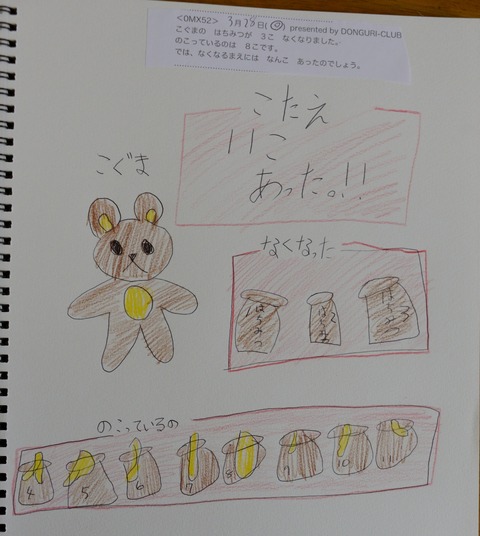 <OMX52> 3月28日(◎) presented by DONGURI-CLUB
こぐまの はちみつが 3こ なくなりました。
のこっているのは 8こです。
では、なくなるまえには なんこ あったのでしょう。
こたえ
11こ
あった。!!
こぐま
なくなった
1 はちみつ
2 はちみつ
3 はちみつ
のこっているの
4 5 6 7 8 9 10 11